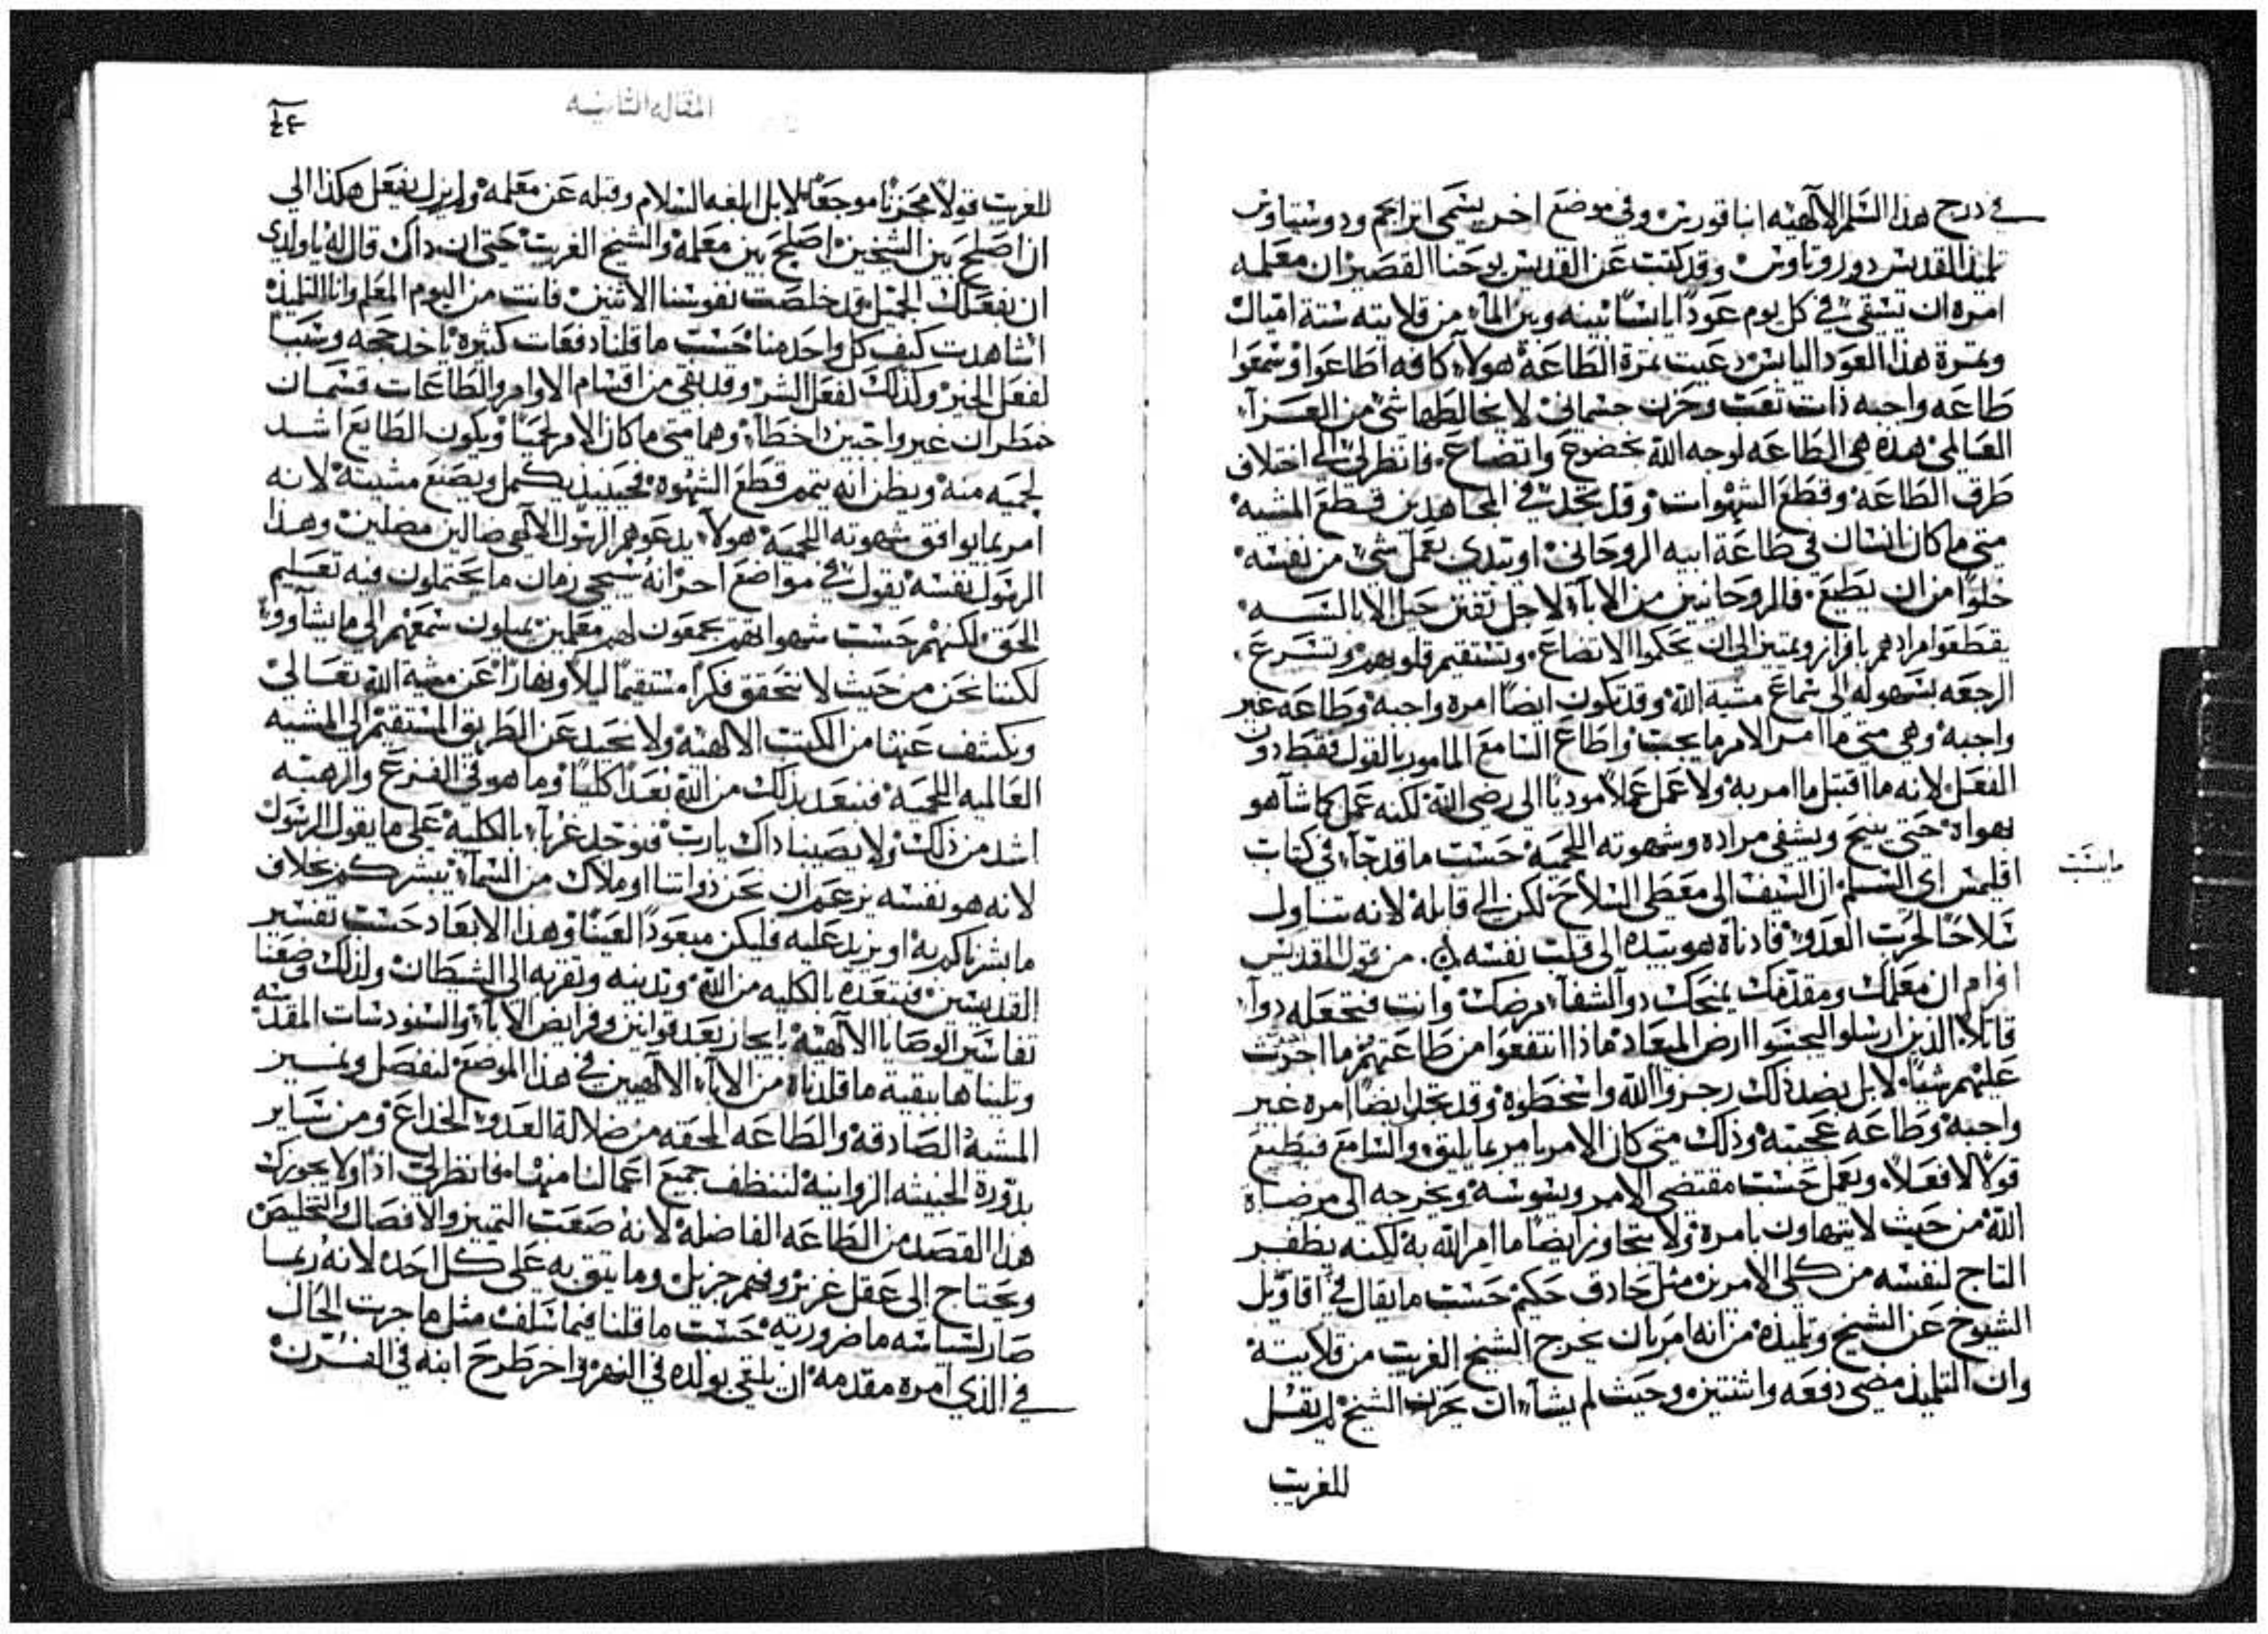 في درج هذا السلم الالهيه انبا قورين وفي موضع اخر يسمى ابراجم ودوسيتاوس
تلميذ القديس دوروتاوس وقد كتبت عن القديس يوحنا القصير ان معلمه
امره ان يسقي في كل يوم عوداً يابساً بينه وبين الماء من قلايته ستة اميال
وثمرة هذا العود اليابس دعيت ثمرة الطاعة هولاء كافه اطاعوا وسمعوا
طاعه واجبه ذات تعب وحزن جسماني لا يخالطها شي من العزاء
العالمي هذه هي الطاعه لوجه الله بخضوع واتضاع فانظر لي الى اختلاف
طرق الطاعه وقطع الشهوات وقد نجد في المجاهدين قطع المشيه
متى ما كان انسان في طاعة ابيه الروحاني او يبتدي بعمل شي من نفسه
خلواً من ان يطيع فالروحانيين من الاباء لاجل حيل الابالسه
يقطعوا مرادهم بافراز وتمييز الى ان يحكموا الاتضاع وتستقيم قلوبهم وتسرع
الرجعه بسهوله الى سماع مشية الله وقد تكون ايضاً امره واجبه وطاعه غير
واجبه وهي متى ما امر الامر ما يجب واطاع السامع المامور بالقول فقط دون
الفعل لانه ما اقتبل ما امر به ولا عمل عملاً مودياً الى رضى الله لكنه عمل كما شا هو
بهواه حتى ينيح ويشفي مراده وشهوته اللحميه حسب ما قد جاء في كتاب
اقليمس اي السلم ان السيف الى معطي السلاح لكن الى قابله لانه تناول
سلاحاً لحرب العدو فادناه هو بيده الى قلب نفسه ۞ من قول القديس
افرام ان معلمك ومقدمك يمنحك دوا لشفاء مرضك وانت فتجعله دواء
قاتلا الذين ارسلوا ليجسوا ارض الميعاد ماذا انتفعوا من طاعتهم ما اجرت
عليهم شياً لا بل بضد ذلك رجزوا الله واسخطوه وقد نجد ايضاً امره غير
واجبه وطاعه عجيبه وذلك متى كان الامر يامر بما يليق والسامع فيطيع
قولا لا فعلا ويعمل حسب مقتضى الامر ويسوسه ويخرجه الى مرضاة
الله من حيث لا يتهاون بامره ولا يتجاوز ايضاً ما امر الله به لكنه يظفر
التاج لنفسه من كلى الامرين مثل حادق حكيم حسب ما يقال في اقاويل
الشيوخ عن الشيخ وتلميذه من انه امر بان يخرج الشيخ الغريب من قلايته
وان التلميذ مضى دفعه واثنتين وحيث لم يشاء ان يحزن الشيخ لم يقل
للغريب
المقاله الثانيه
للغريب قولاً محزناً موجعاً لا بل ابلغه السلام وقبله عن معلمه ولم يزل يفعل هكذا الى
ان اصلح بين الشيخين اصلح بين معلمه والشيخ الغريب حتى ان داك قال له ياولدي
ان بفعلك الجميل قد خلصت نفوسنا الاثنين فانت من اليوم المعلم وانا التلميذ
اشاهدت كيف كل واحد منا حسب ما قلنا دفعات كثيره ياخد حجه وسبباً
لفعل الخير وكذلك لفعل الشر وقد بقي من اقسام الاوامر والطاعات قسمان
خطران غير واجبين داخطاء وهما متى ما كان الامر لحمياً ويكون الطايع اشد
لحميه منه ويظن انه يتمم قطع الشهوه فحينيذ يكمل ويصنع مشيته لانه
امر بما يوافق شهوته اللحميه هولاء يدعوهم الرسول الالهي ضالين مضلين وهذا
الرسول نفسه يقول في مواضع اخر انه سيجي زمان ما يحتملون فيه تعليم
الحق لكنهم حسب شهواتهم يجمعون لهم معلمين يميلون سمعهم الى ما يشاوو
لكننا نحن من حيث لا نحقق فكراً مستقيماً ليلاً ونهاراً عن مشية الله تعالى
ونكشف عنها من الكتب الالهيه ولا نحيد عن الطريق المستقيم الى المشيه
العالميه اللحميه فنبعد بذلك من الله بعداً كلياً وما هو في الفزع والرهبه
اشد من ذلك ولا يصيبنا داك يارب فنوجد غرباء بالكليه على ما يقول الرسول
لانه هو نفسه يزعم ان نحن ذواتنا او ملاك من السماء يبشركم بخلاف
ما بشرناكم به او يزيد عليه فليكن مبعوداً لعيناً وهذا الابعاد حسب تفسير
القديسين فيبعده بالكليه من الله وتدينه وتقربه الى الشيطان ولذلك وضعنا
تفاسير الوصايا الالهيه بايجاز بعد قوانين وفرايض الاباء والسنودسات المقدسه
وتليناها ببقية ما قلدناه من الاباء الالهيين في هذا الموضع لنفصل ونميز
المشيه الصادقه والطاعه المحقه من ضلالة العدو الخداع ومن ساير
بدوره الخبيثه الزوانيه لننظف جميع اعمالنا منها فانظر لي اذاً ولا يحوزك
هذا القصد من الطاعه الفاضله لانه صعب التمييز والافصال والتخليص
ويحتاج الى عقل غزيز وفهم جزيل وما يتق به على كل احد لانه ربما
صار لسياسه ما ضروريه حسب ما قلنا فيما سلف مثل ما جرت الحال
في الذي امره مقدمه ان يلقي بولده في النهر واخر طرح ابنه في الفرن